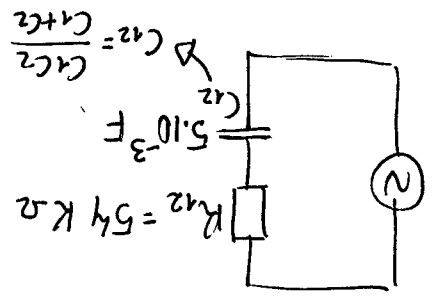 R₁₂ = 54 KΩ
5.10⁻³ F
C₁₂
C₁₂ = C₁C₂ / C₁+C₂
N